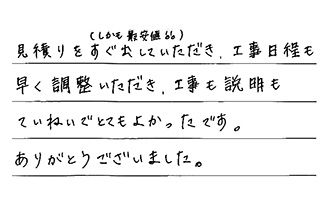 (しかも最安値!!)
見積りをすぐ出していただき、工事日程も
早く調整いただき、工事も説明も
ていねいでとてもよかったです。
ありがとうございました。